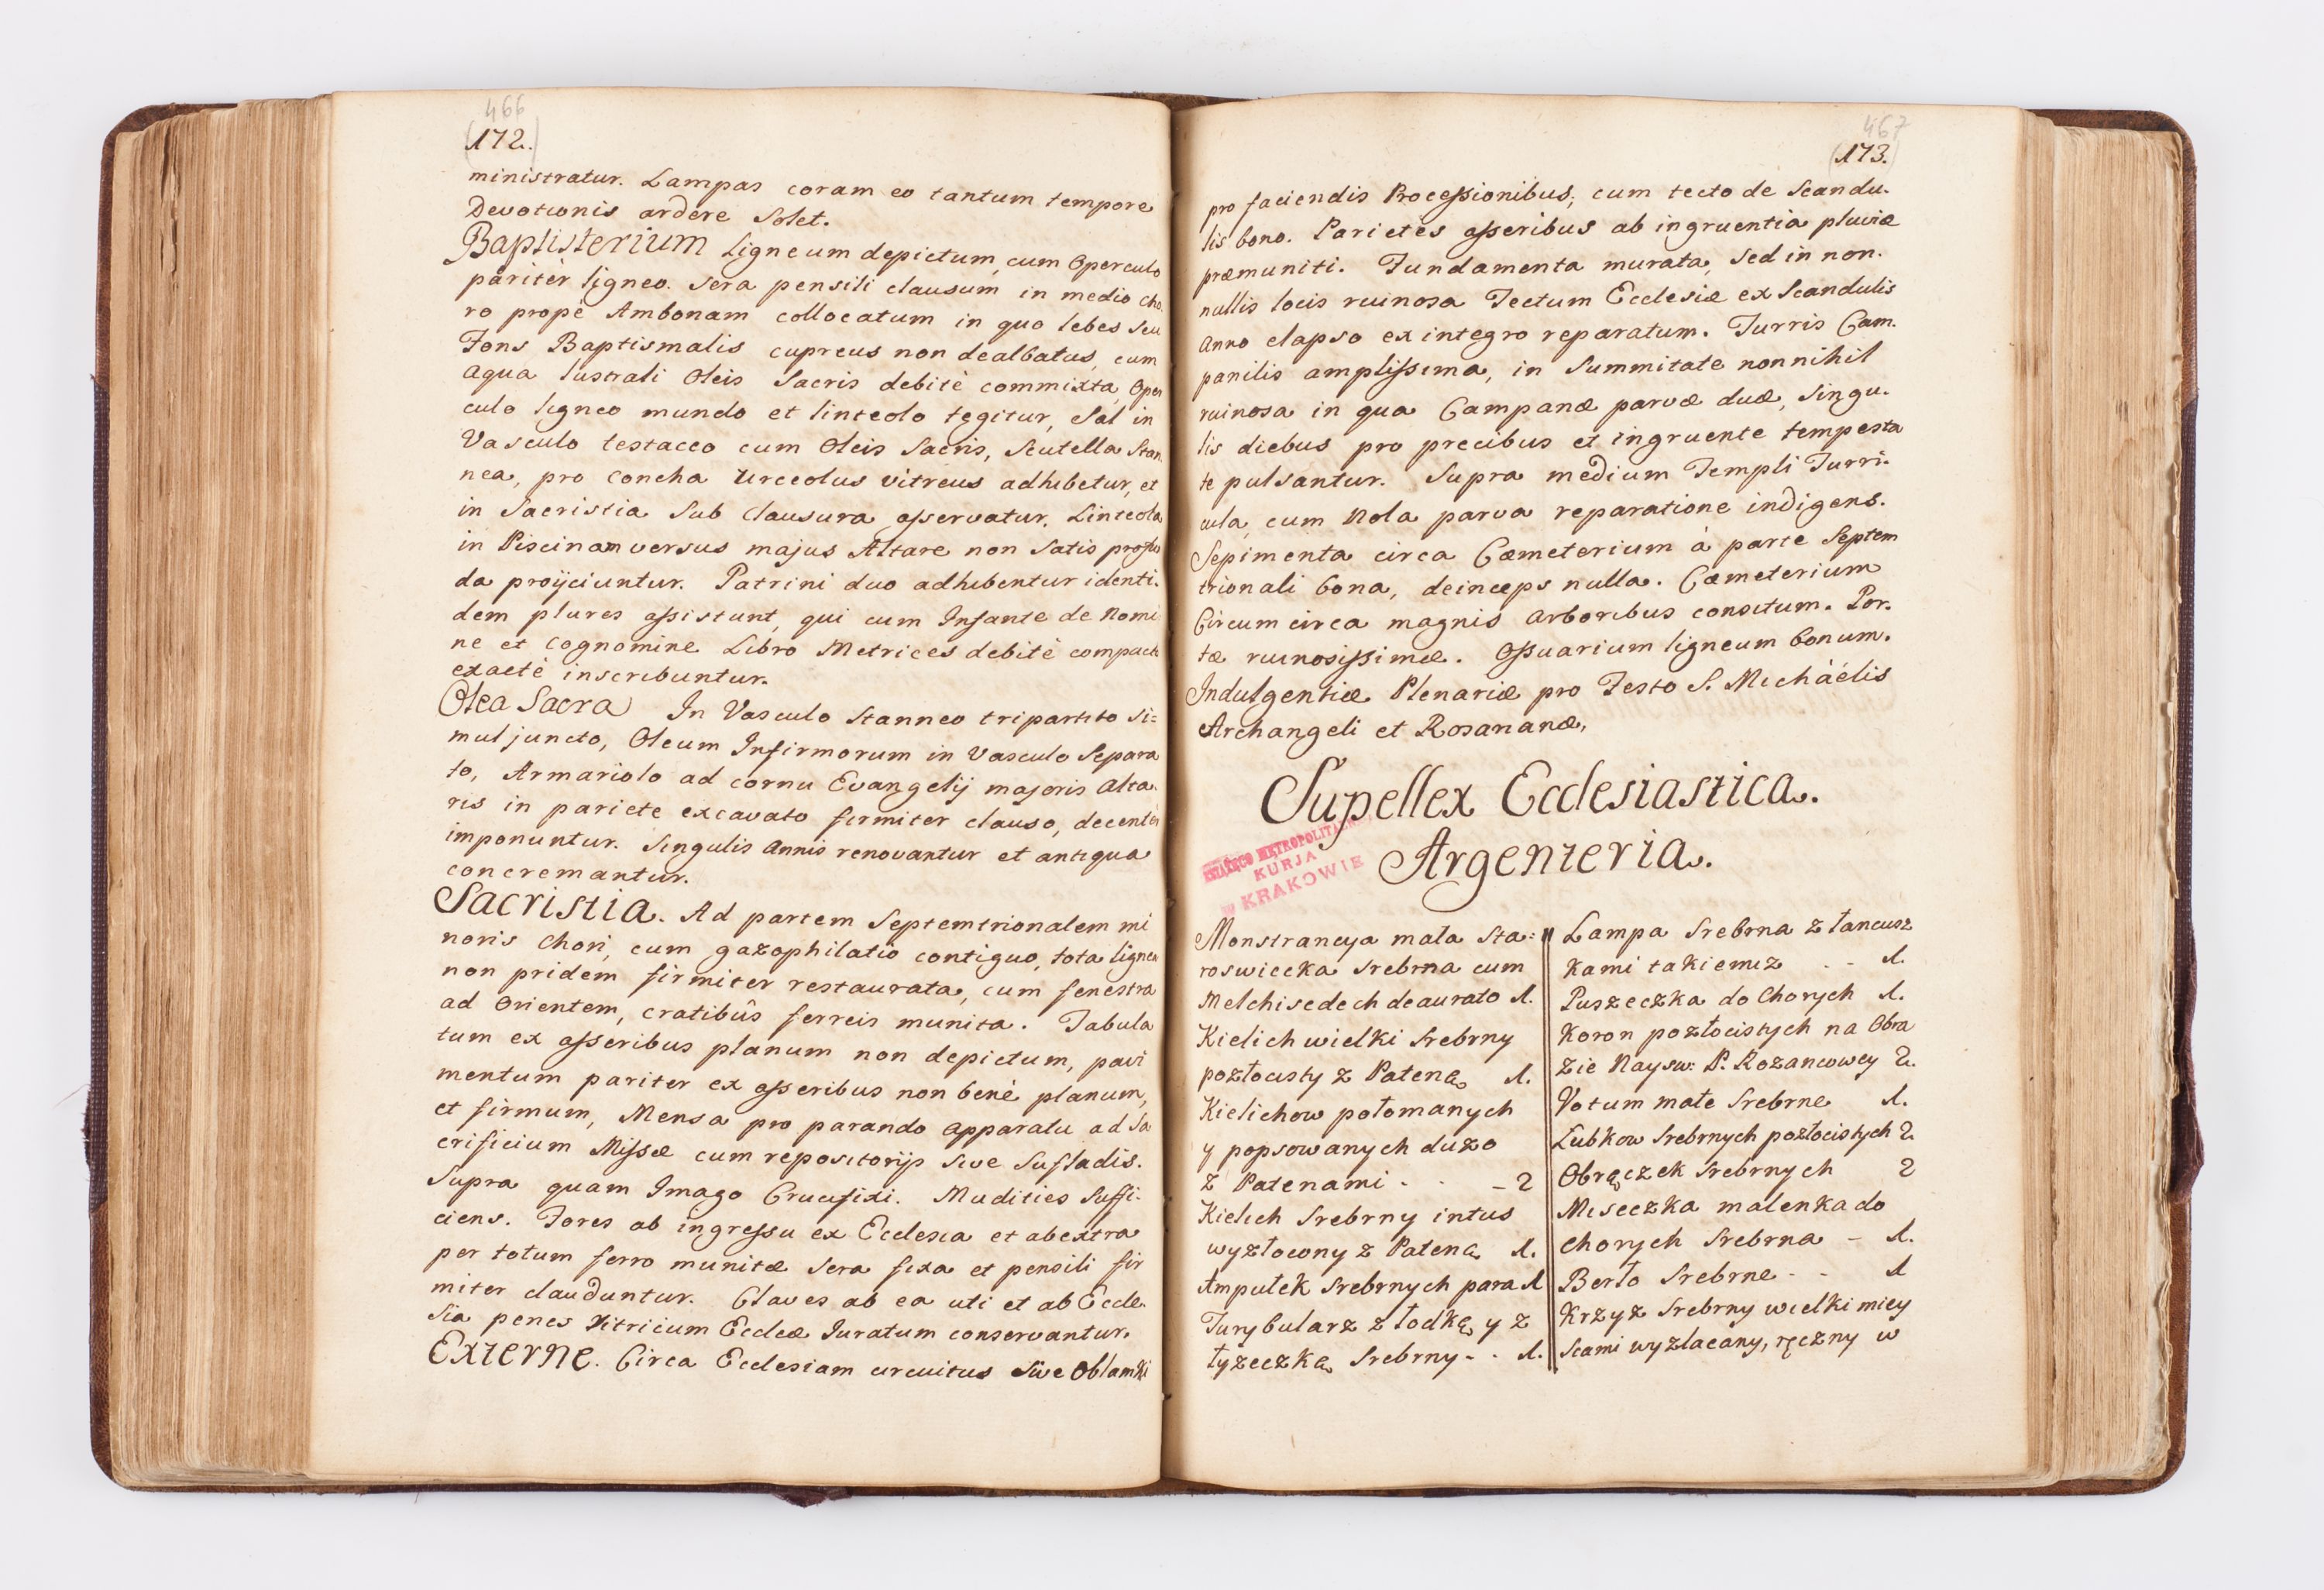 466
(172.)
ministratur. Lampas coram eo tantum tempore
Devotionis ardere Solet.
Baptisterium Ligneum depictum, cum Operculo
paritèr ligneo. Sera pensili clausum in medio Cho
ro propè Ambonam collocatum in quo lebes Seu
Fons Baptismalis cupreus non dealbatus, cum
aqua lustrali Oleis Sacris debitè commixta, Oper
culo ligneo mundo et linteolo tęgitur, Sal in
Vasculo testaceo cum Oleis Sacris, Scutella Stan
nea, pro Concha Urceolus vitreus adhibetur, et
in Sacristia Sub Clausura asservatur. Linteola
in Piscinam versus majus Altare non Satis profun
da proijciuntur. Patrini duo adhibentur identi.
dem plures assistunt, qui cum Infante de Nomi
ne et Cognomine Libro Metrices debitè compacto
exactè inscribuntur.
Olea Sacra In Vasculo Stanneo tripartito Si=
mul juncto, Oleum Infirmorum in Vasculo Separa
to, Armariolo ad cornu Evangelij majoris Alta.
ris in pariete excavato firmiter clauso, decentèr
imponuntur. Singulis Annis renovantur et antiqua
concremantur.
Sacristia. Ad partem Septemtrionalem mi
noris Chori, cum gazophilatio contiguo, tota lignea
non pridem firmiter restaurata, cum fenestra
ad Orientem, cratibûs ferreis munita. Tabula
tum ex asseribus planum non depictum, pavi
mentum pariter ex asseribus non benè planum,
et firmum, Mensa pro parando apparatu ad Sa
crificium Missæ cum repositorijs Sive Sufladis.
Supra quam Imago Crucifixi. Mudities Suffi.
ciens. Fores ab ingressu ex Ecclesia et abextra
per totum ferro munitæ Sera fixa et pensili fir
miter clauduntur. Claves ab ea uti et ab Eccle.
sia penes Vitricum Eccleæ Iuratum conservantur.
Externe. Circa Ecclesiam circuitus Sive Oblamki
467
(173.)
pro faciendis Processionibus, cum tecto de Scandu.
lis bono. Parietes asseribus ab ingruentia pluviæ
præmuniti. Fundamenta murata, Sed in non.
nullis locis ruinosa Tectum Ecclesiæ ex Scandulis
Anno elapso ex integro reparatum. Turris Cam.
panilis amplissima, in Summitate nonnihil
ruinosa in qua Campanæ parvæ duæ, Singu.
lis diebus pro precibus et ingruente tempesta
te pulsantur. Supra medium Templi Turri.
cula, cum Nola parva reparatione indigens.
Sepimenta circa Cæmeterium à parte Septem
trionali bona, deinceps nulla. Cæmeterium
Circum circa magnis arboribus consitum. Por.
tæ ruinosissimæ. Ossuarium ligneum bonum.
Indulgentiæ Plenariæ pro Festo S. Michàélis
Archangeli et Rosarianæ,
Supellex Ecclesiastica.
Argenteria.
KSIĄŻĘCO METROPOLITALNA
KURJA
w KRAKOWIE
Monstrancya mała Sta=
roswiecka Srebrna cum
Melchisedech deaurato 1.
Kielich wielki Srebrny
pozłocisty z Pateną 1.
Kielichow połomanych
y popsowanych duzo
z Patenami - - - 2
Kielich Srebrny intus
wyzłocony z Pateną 1.
Ampułek Srebrnych para 1
Turybularz z łodką y z
łyzeczką Srebrny - - 1.
Lampa Srebrna z łancusz
kami takiemiz - - 1.
Puszeczka do Chorych 1.
Koron pozłocistych na Obra
zie Naysw: P. Rozancowey 2.
Votum małe Srebrne 1.
Łubkow Srebrnych pozłocistych 2.
Obrączek Srebrnych 2
Miseczka malenka do
chorych Srebrna - 1.
Berło Srebrne - - 1
Krzyz Srebrny wielki miey
scami wyzlacany, ręczny w